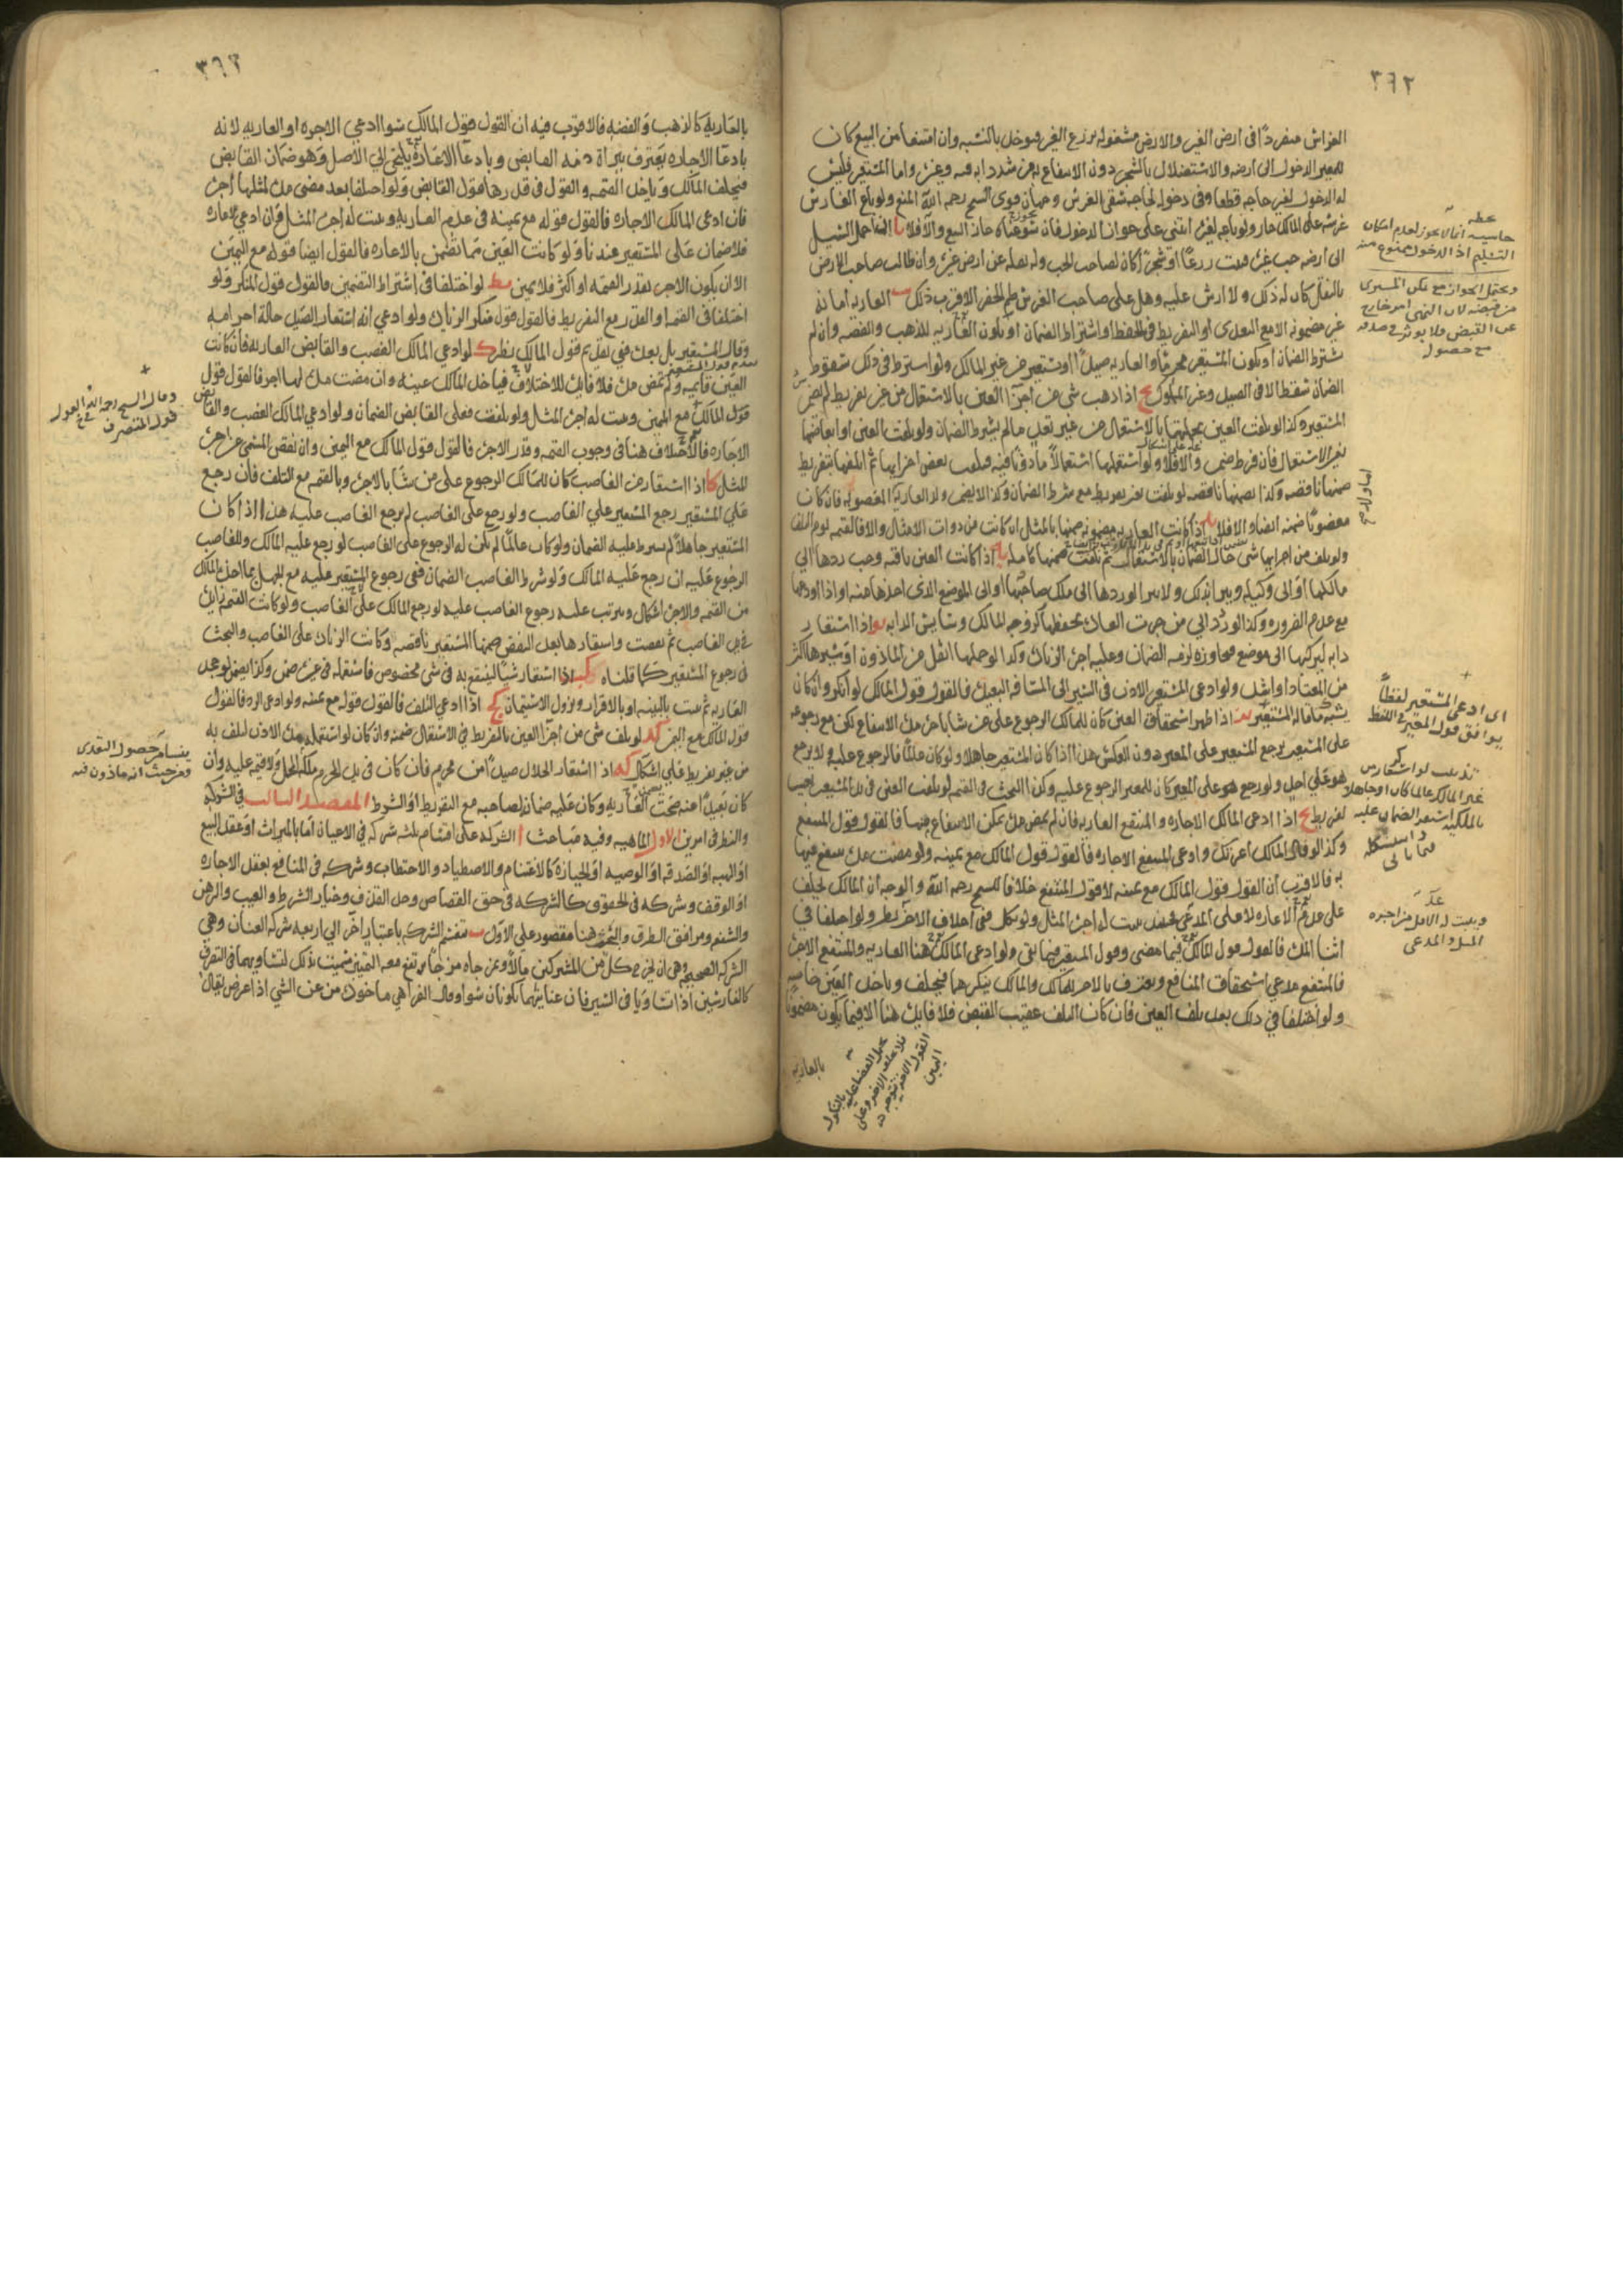 ٣٦٢
الغراس منفردًا في ارض الغير والارض مشغوله بزرع الغير فيدخل بالنسبه وان امتنعا من البيع كان
للمعير الدخول الى ارضه والاستضلال بالشجر دون الانتفاع به من شد دابه فيه وغيره واما المستعير فليس
له الدخول لغير حاجه قطعا وفي دخوله لحاجه سقى الغرس وجهان قوى الشيخ رحمه الله المنع ولو باع الغارس
غرسه على المالك جاز ولو باعه لغيره ابتنى على جواز الدخول فان سوغناه جاز البيع والا فلا يا اذا حمل السيل
الى ارضه حب غيره فنبت زرعًا او شجرًا كان لصاحب الحب وله نقله عن ارض غيره وان طالب صاحب الارض
بالنقل كان له ذلك ولا ارش عليه وهل على صاحب الغرس طم الحفر الاقرب ذلك يب العاريه امانه
غير مضمونه الا مع التعدى او التفريط في الحفظ او اشتراط الضمان او تكون العاريه للذهب والفضه وان لم
يشترط الضمان او يكون المستعير محرمًا والعاريه صيدًا او يستعير من غير المالك ولو اشترط في ذلك سقوط
الضمان سقط الا في الصيد وغير المملوك يج اذا ذهب شى من اجزآ العين بالاستعمال من غير تفريط لم يضمن
المستعير وكذا لو تلفت العين بجملتها بالاستعمال من غير تعد مالم يشترط الضمان ولو تلفت العين او ابعاضها
بغير الاستعمال فان فرط ضمن والا فلا ولو استعملها استعمالًا مأذونًا فيه فتلف بعض اجزايها ثم اتلفها بتفريط
ضمنها ناقصه وكذا يضمنها ناقصه لو تلفت بغير تفريط مع شرط الضمان وكذا لا يضمن ولد العاريه المغصوبه فان كان
مغصوبًا ضمنه ايضا والا فلا يد اذا كانت العاريه مضمونه ضمنها بالمثل ان كانت من ذوات الامثال والا فالقيمه يوم التلف
ولو تلف من اجزايها شى حال الضمان بالاستعمال ثم تلفت ضمنها كامله يه اذا كانت العين باقيه وجب ردها الى
مالكها او الى وكيله ويبرا بذلك ولا يبرا لو ردها الى ملك صاحبها او الى الموضع الذى اخذها منه او اذا اودعها
مع عدم الضروره وكذا لو رد الى من جرت العاده بحفظها كزوجه المالك وسايس الدابه يو اذا استعار
دابه ليركبها الى موضع فجاوزه لزمه الضمان وعليه اجره الزياده وكذا لو حملها اثقل من الماذون او سيرها اكثر
من المعتاد او اشد ولو ادعى المستعير الاذن في السير الى المسافه البعيده فالقول قول المالك لو انكر وان كان
يشبه ما قاله المستعير يز اذا ظهر استحقاق العين كان للمالك الرجوع على من شا باجره مده الانتفاع لكن مع رجوعه
على المستعير يرجع المستعير على المعير دون العكس هذا اذا كان المستعير جاهلا ولو كان عالمًا فالرجوع عليه ولا يرجع
هو على احد ولو رجع هو على المعير كان للمعير الرجوع عليه وكذا البحث في القيمه لو تلفت العين في يد المستعير اجنبيا
لغير تفريط يح اذا ادعى المالك الاجاره والمنتفع العاريه فان لم يمض مده يمكن الانتفاع فيها فالقول قول المنتفع
وكذا لو قال المالك اعرتك وادعى المنتفع الاجاره فالقول قول المالك مع يمينه ولو مضت مده ينتفع فيها
به فالاقرب ان القول قول المالك مع يمينه لا قول المنتفع خلافا للشيخ رحمه الله والوجه ان المالك يحلف
على عدم الاعاره لا على المدعى فيثبت له اجره المثل ولو نكل ففي احلاف الاخر نظر ولو اختلفا في
اثنا المده فالقول قول المالك فيما مضى وقول المستعير فيما بقى ولو ادعى المالك هنا العاريه والمنتفع الاجره
فالمنتفع مدعى استحقاق المنافع ويعترف بالاجر للمالك والمالك ينكرهما فيحلف وياخذ العين خاصه
ولو اختلفا في ذلك بعد تلف العين فان كان التلف عقيب القبض فلا فايده هنا الا فيما يكون مضمونًا
بالعاريه
حاشيه انما لا يجوز لعدم امكان
التسليم اذ الدخول ممنوع منه
ويحتمل الجواز مع تمكن المشترى
من قبضه لان النهى امر خارج
عن القبض فلا يوثر في صدقه
مع حصول
اى ادعى المستعير لفظاً
يوافق قول المعير في اللفظ
تذنيب لو استعار من
غير المالك عالما كان او جاهلا
بالملكيه استقر الضمان عليه
ويثبت له الاقل من اجره
المثل والمدعى
٣٦٣
بالعاريه كالذهب والفضه فالاقرب فيه ان القول قول المالك سوا ادعى الاجره او العاريه لانه
بادعا الاجاره يعترف ببراة ذمه القابض وبادعآ الاعارة يلتجى الى الاصل وهو ضمان القابض
فيحلف المالك وياخذ القيمه والقول في قدرها قول القابض ولو اختلفا بعد مضى مده لمثلها اجره
فان ادعى المالك الاجاره فالقول قوله مع يمينه في عدم العاريه ويثبت له اجره المثل وان ادعى الاعاره
فلا ضمان على المستعير عندنا ولو كانت العين مما تضمن بالاعاره فالقول ايضا قوله مع اليمين
الا ان يكون الاجر بقدر القيمه او اكثر فلا يمين يط لو اختلفا في اشتراط التضمين فالقول قول المنكر ولو
اختلفا في القيمه او القدر مع التفريط فالقول قول منكر الزياده ولو ادعى انه استعار الصيد حالة احرامه
وقال المستعير بل بعده ففي تقديم قول المالك نظر ك لو ادعى المالك الغصب والقابض العاريه فان كانت
العين قايمه ولم تمض مده فلا فايده للاختلاف فياخذ المالك عينه وان مضت مده لها اجر فالقول قول
قول المالك مع اليمين ويثبت له اجره المثل ولو تلفت فعلى القابض الضمان ولو ادعى المالك الغصب والقابض
الاجاره فالاختلاف هنا في وجوب القيمه وقدر الاجره فالقول قول المالك مع اليمين وان نقص المسمى عن اجره
المثل كا اذا استعار من الغاصب كان للمالك الرجوع على من شا بالاجره وبالقيمه مع التلف فان رجع
على المستعير رجع المستعير على الغاصب ولو رجع على الغاصب لم يرجع الغاصب عليه هذا اذا كان
المستعير جاهلا لم يشرط عليه الضمان ولو كان عالمًا لم يكن له الرجوع على الغاصب لو رجع عليه المالك وللغاصب
الرجوع عليه ان رجع عليه المالك ولو شرط الغاصب الضمان ففي رجوع المستعير عليه مع الجهل بما اخذه المالك
من القيمه والاجره اشكال ويترتب عليه رجوع الغاصب عليه لو رجع المالك على الغاصب ولو كانت القيمه زايده
في يد الغاصب ثم نقصت واستعارها بعد النقص ضمنها المستعير ناقصه وكانت الزياده على الغاصب والبحث
في رجوع المستعير كما قلناه كب اذا استعار شيًا لينتفع به في شى مخصوص فاستعمله في غيره ضمن وكذا يضمن لو جحد
العاريه ثم ثبتت بالبينه او بالاقرار ويزول الاستيمان كج اذا ادعى التلف فالقول قوله مع يمينه ولو ادعى الرد فالقول
قول المالك مع اليمين كد لو تلف شى من اجزآ العين بالتفريط في الاستعمال ضمنه وان كان لو استعمله مده الاذن لتلف به
من غير تفريط فعلى اشكال كه اذا استعار الحلال صيدًا من محرم فان كان في يد المحرم ملكه المحل ولا قيمه عليه وان
كان بعيدًا عنه صحت العاريه وكان عليه ضمان لصاحبه مع التفريط او الشرط المقصد الثالث في الشركه
والنظر في امرين الاول الماهيه وفيه مباحث ا الشركه على اقسام ثلثه شركه في الاعيان اما بالميراث او عقد البيع
او الهبه او الصدقه او الوصيه او الحيازة كالاغتنام والاصطياد والاحتطاب وشركه في المنافع بعقد الاجاره
او الوقف وشركه في الحقوق كالشركه في حق القصاص وحد القذف وخيار الشرط والعيب والرهن
والشفعه ومرافق الطرق والبحث هنا مقصور على الاول ب تنقسم الشركه باعتبار آخر الى اربعه شركه العنان وهى
الشركه الصحيحه وهى ان يخرج كل من المشتركين مالًا سميت بذلك لتساويهما في التصرف
كالفارسين اذا تساويا في السير فان عنانيهما يكونان سوا وقال الفرا هى ماخوذه من عن الشى اذا عرض يقال
وقال الشيخ رحمه الله القول
قول المتصرف
ينشا من حصول التعدى
ومن حيث انه ماذون فيه